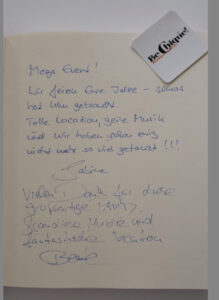 Be Chique!
Mega Event!
Wir feiern Eure Idee – sowas
hat Ulm gebraucht
Tolle Location, geile Musik
und wir haben schon ewig
nicht mehr so viel getanzt!!!
Sabine
Vielen Dank für diese
großartige PARTY
grandiose Musik und
fantastische Location